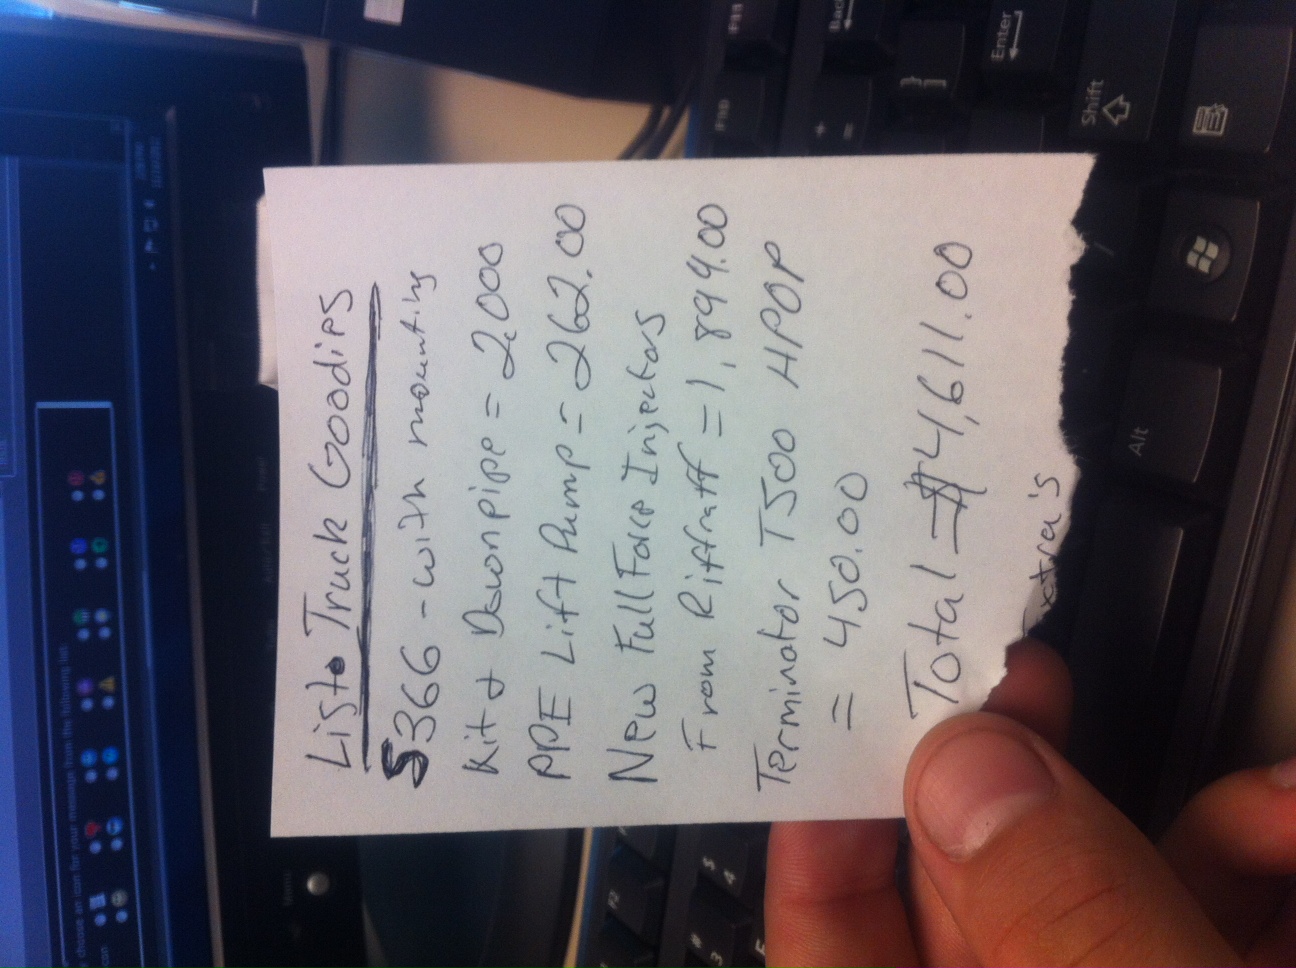 List Truck Goodies
S366 - with mounting
Kit & Downpipe = 2,000
PPE Lift Pump = 262.00
New Full Force Injectors
From Riffraff = 1,899.00
Terminator T500 HPOP
= 450.00
Total = $4,611.00
Extra's
choose an icon for your message from the following list
Menu
F11
F10
+
=
}
]
Enter
Shift
Alt
F2
$
4
#
3
E